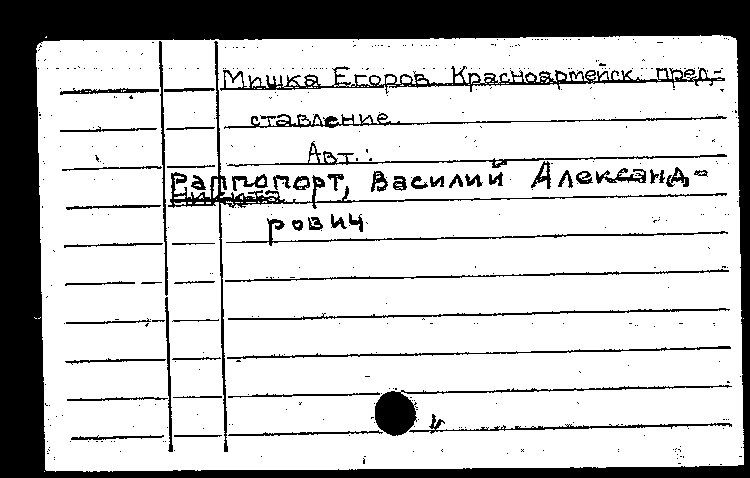 Мишка Егоров. Красноармейск. пред-
ставление.
Авт.:
Раппопорт, Василий Александ-
рович